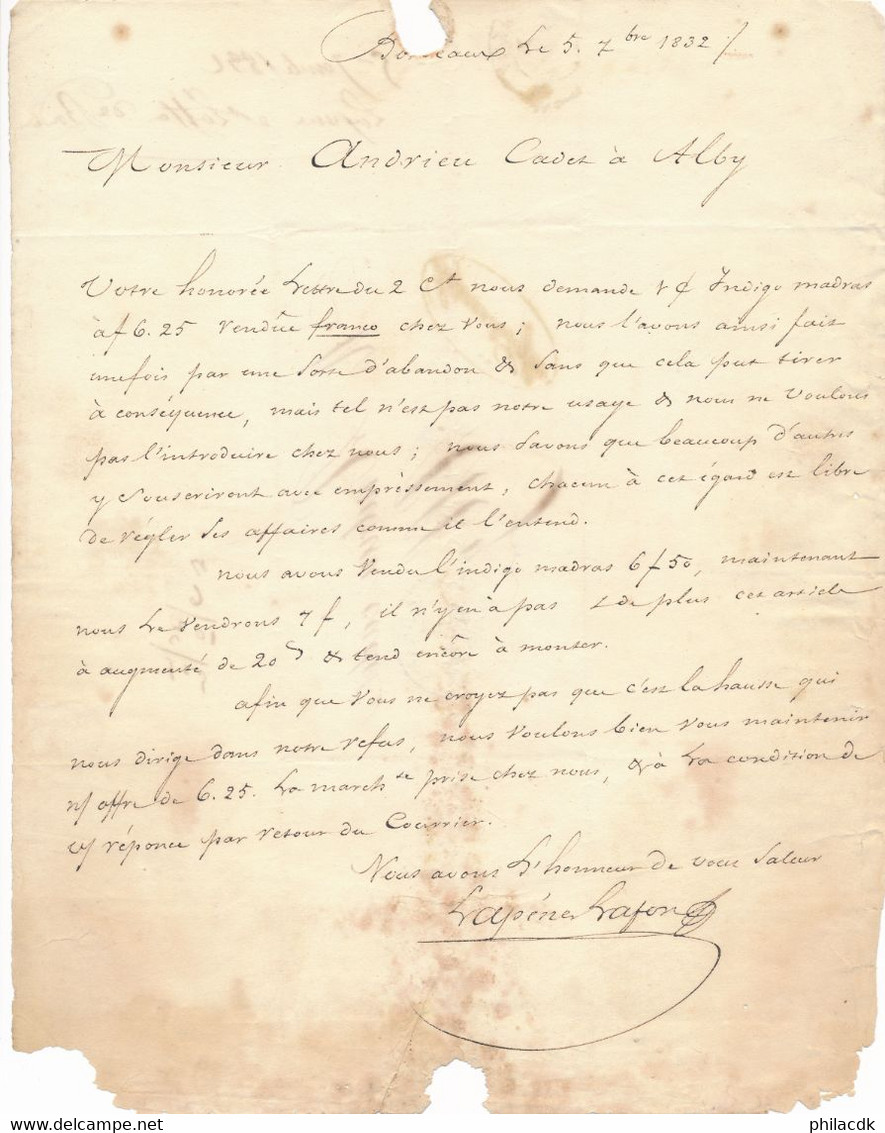 Bordeaux Le 5. 7bre 1832
Monsieur Andrieu Cadet à Alby
Votre honorée Lettre du 2 Ct nous demande 1 ₵ Indigo madras
à f 6.25 vendûe franco chez vous; nous l'avons ainsi fait
unefois par une sorte d'abandon & sans que cela put tirer
à conséquence, mais tel n'est pas notre usage & nous ne voulons
pas l'introduire chez nous; nous savons que beaucoup d'autres
y souscriront avec empressement, chacun à cet égard est libre
de régler ses affaires comme il l'entend.
nous avons vendu l'indigo madras 6f50, maintenant
nous le vendrons 7f, il n'y en à pas & de plus cet article
à augmenté de 20 & tend encôre à monter.
afin que vous ne croyez pas que c'est la hausse qui
nous dirige dans notre refus, nous voulons bien vous maintenir
n/ offre de 6.25. La march se prise chez nous, & à La condition de
v/ réponce par retour du Courrier.
Nous avons L'honneur de vous saluer
Lapène Lafon
philacdk
www.delcampe.net